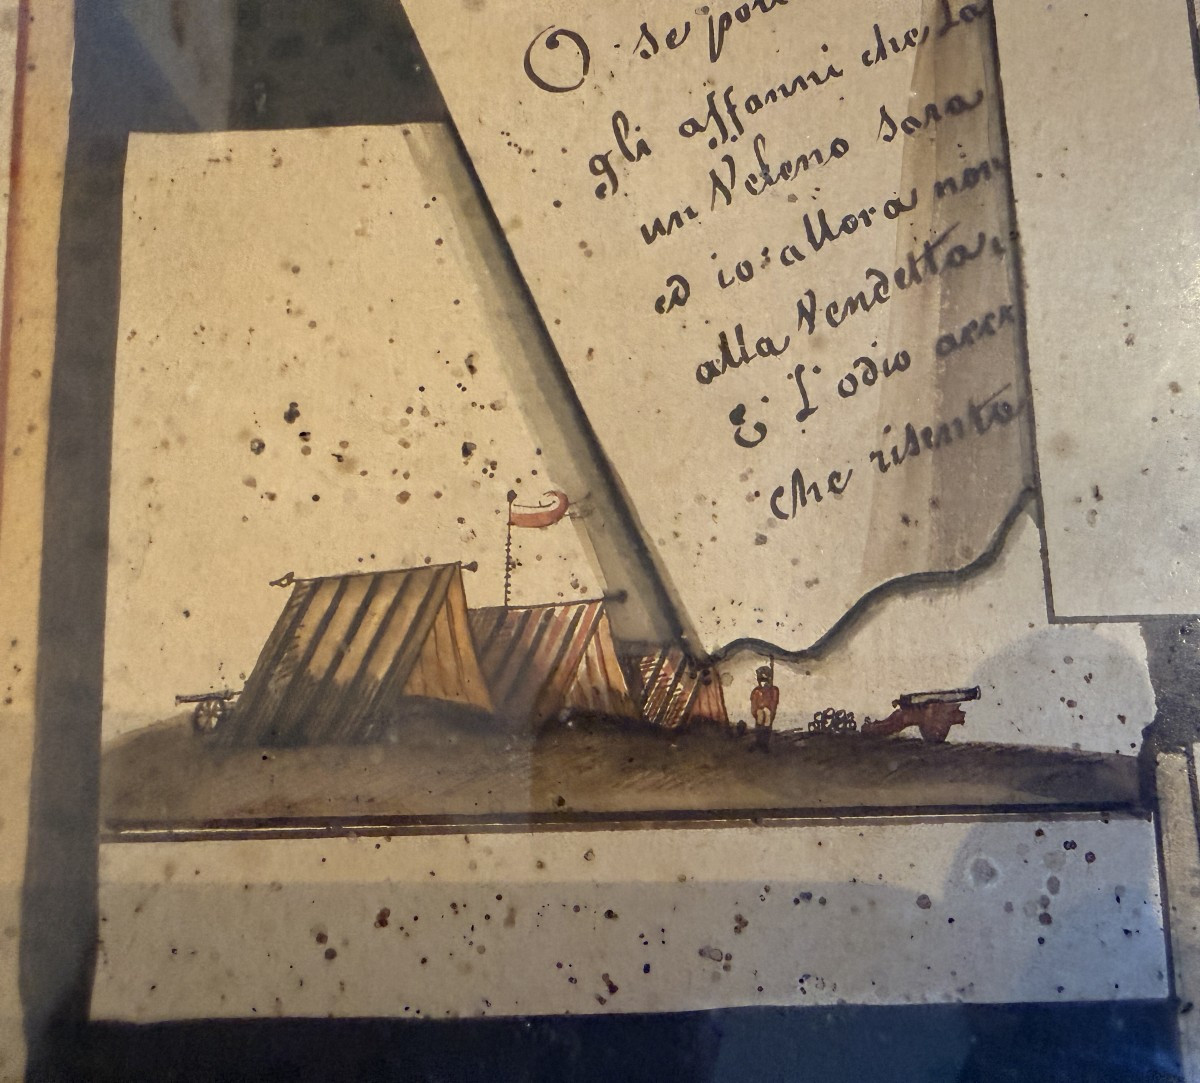 O se
gli affanni che La
un Veleno sara
ed io allora non
alla Vendetta
E L'odio
che risento